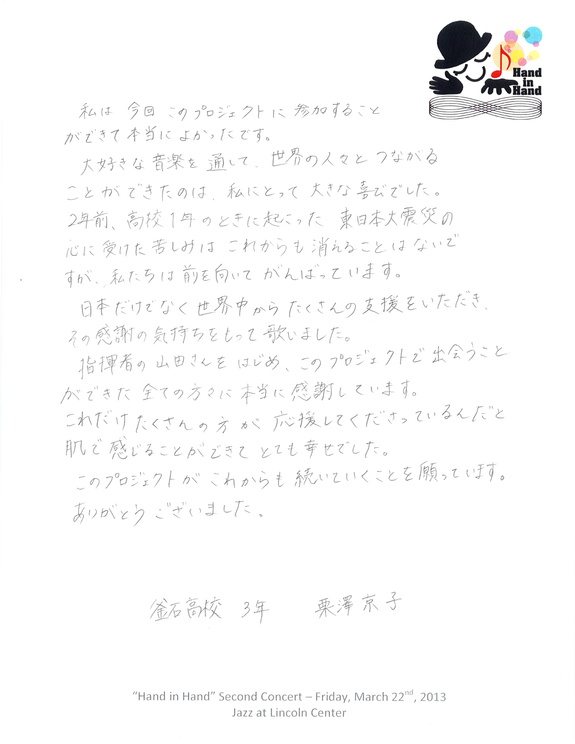 Hand
in
Hand
私は 今回 このプロジェクトに 参加すること
ができて本当によかったです。
大好きな音楽を通して、世界の人々とつながる
ことができたのは、私にとって大きな喜びでした。
2年前、高校1年のときに起こった 東日本大震災の
心に受けた苦しみは これからも消えることはないで
すが、私たちは前を向いてがんばっています。
日本だけでなく世界中からたくさんの支援をいただき、
その感謝の気持ちをもって歌いました。
指揮者の山田さんをはじめ、このプロジェクトで出会うこと
ができた全ての方々に本当に感謝しています。
これだけたくさんの方が応援してくださっているんだと
肌で感じることができてとても幸せでした。
このプロジェクトがこれからも続いていくことを願っています。
ありがとうございました。
釜石高校 3年 栗澤京子
“Hand in Hand” Second Concert – Friday, March 22nd, 2013
Jazz at Lincoln Center